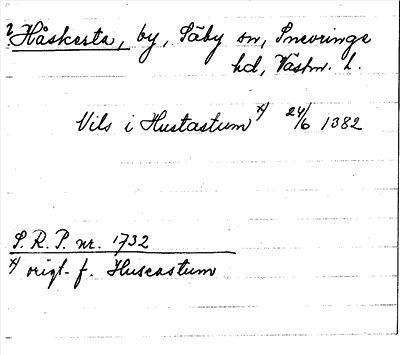 ? Håskesta, by, Säby sn, Snevringe
hd, Västm. l.
Vils i Hustastum x) 24/6 1382
S. R. P. nr. 1732
x) rigt. f. Huscastum